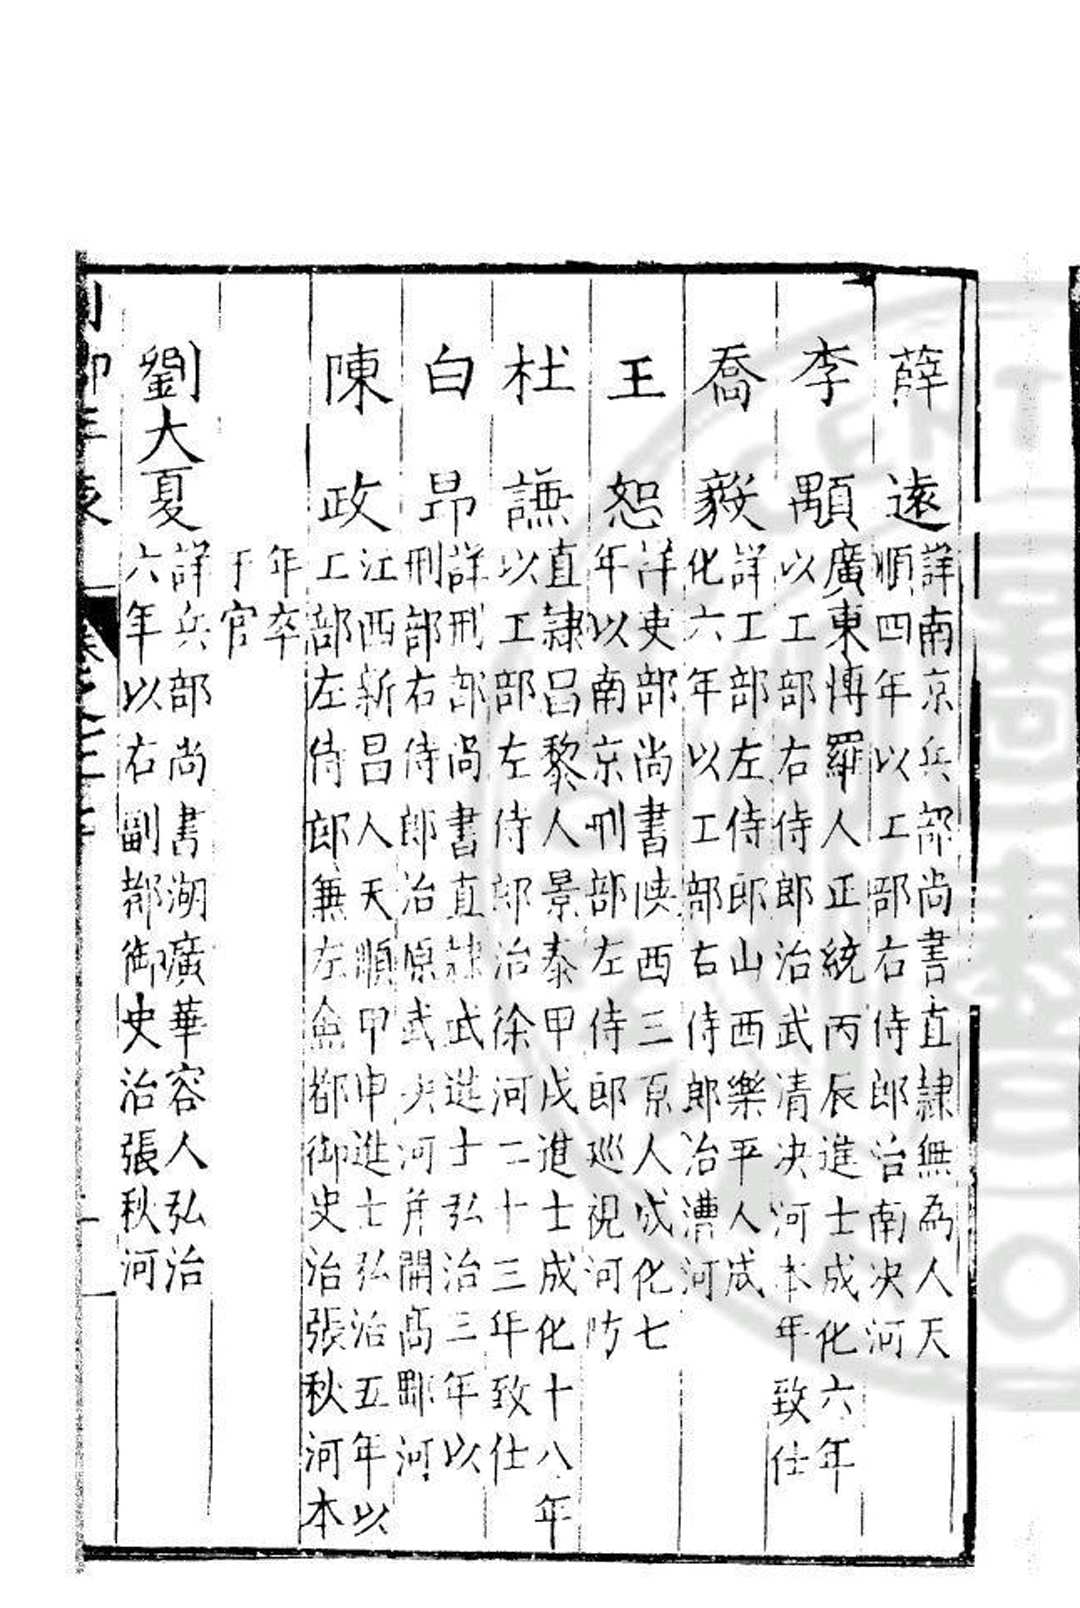 薛遠
詳南京兵部尚書直隸無為人天
順四年以工部右侍郎治南決河
李顒
廣東博羅人正統丙辰進士成化六年
以工部右侍郎治武清決河本年致仕
喬毅
詳工部左侍郎山西樂平人成
化六年以工部右侍郎治漕河
王恕
詳吏部尚書陝西三原人成化七
年以南京刑部左侍郎巡視河防
杜謙
直隸昌黎人景泰甲戌進士成化十八年
以工部左侍郎治徐河二十三年致仕
白昂
詳刑部尚書直隸武進士弘治三年以
刑部右侍郎治原武決河并開高郵河
陳政
江西新昌人天順甲申進士弘治五年以
工部左侍郎兼左僉都御史治張秋河本
年卒
于官
劉大夏
詳兵部尚書湖廣華容人弘治
六年以右副都御史治張秋河
列卿年表 卷之